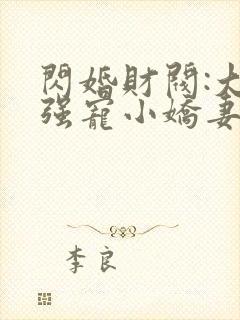 閃婚財閥:大
强寵小嬌妻
李良